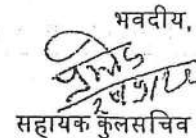 भवदीय,
सहायक कुलसचिव